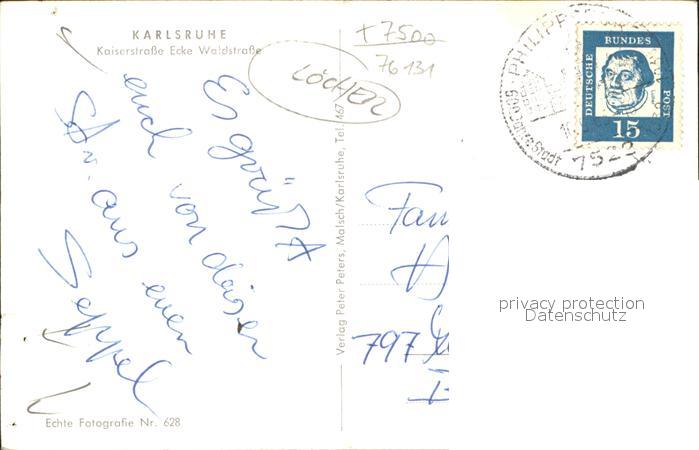 KARLSRUHE
Kaiserstraße Ecke Waldstraße
+ 7500
76131
LÖCHER
Es grüßt
euch von dieser
aus euer
Seppel
Echte Fotografie Nr. 628
Verlag Peter Peters, Malsch/Karlsruhe, Tel. 467
Fam
797
PHILIPP
600 Jahre Stadt
1522
DEUTSCHE
BUNDES
POST
15
privacy protection
Datenschutz